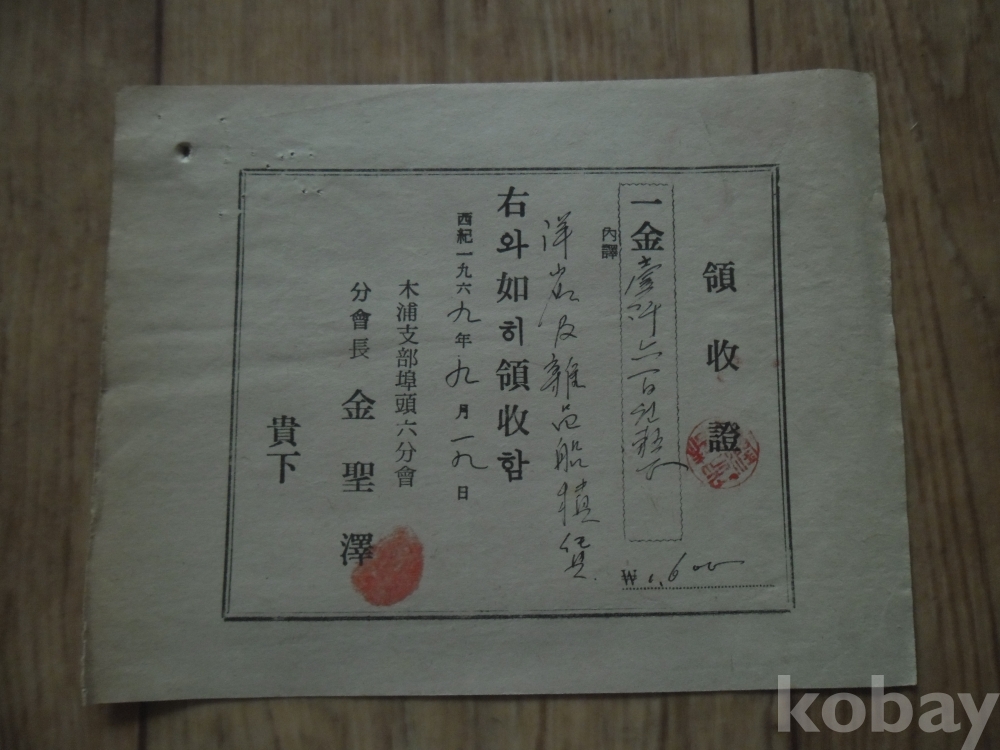 領收證
一金壹阡六百원整
₩1,600
內譯
洋岩及雜品船積賃
右와如히領收함
西紀一九六九年九月一九日
木浦支部埠頭六分會
分會長 金聖澤
貴下
kobay